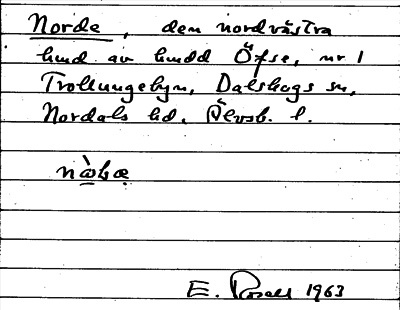 Norde, den nordvästra
hmd. av hmdd Öfse, nr 1
Trollungebyn, Dalskogs sn,
Nordals hd, Älvsb. l.
E. Rosell 1963